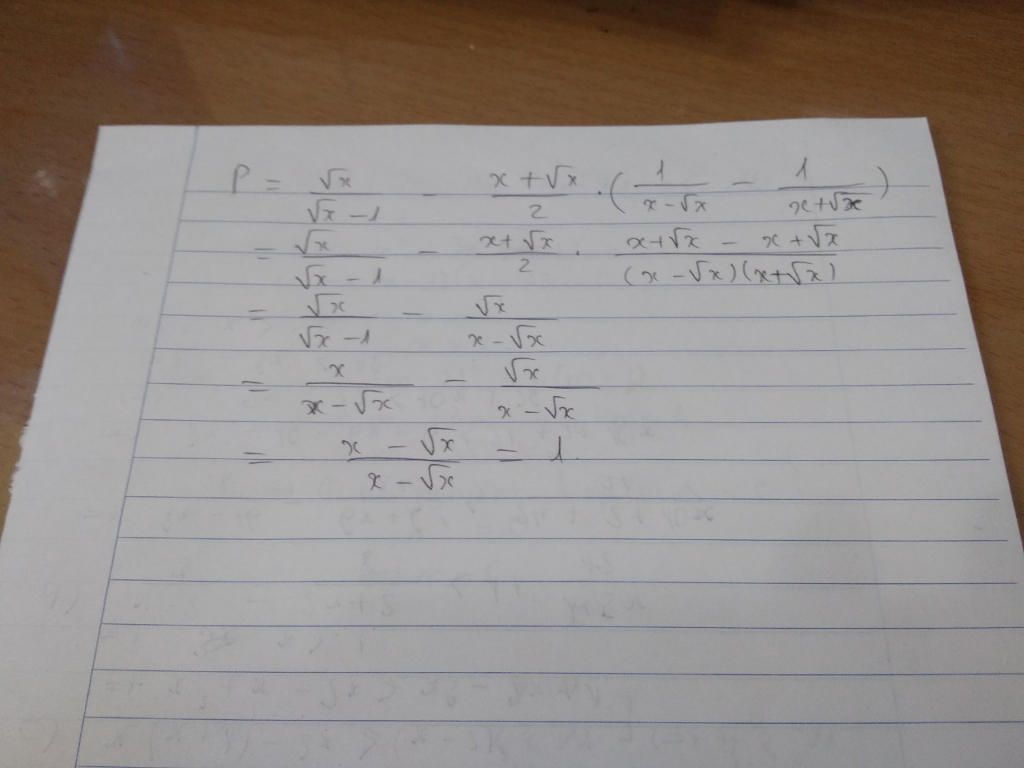 P = √x / (√x - 1) - (x + √x) / 2 . (1 / (x - √x) - 1 / (x + √x))
= √x / (√x - 1) - (x + √x) / 2 . (x + √x - x + √x) / ((x - √x)(x + √x))
= √x / (√x - 1) - √x / (x - √x)
= x / (x - √x) - √x / (x - √x)
= (x - √x) / (x - √x) = 1.